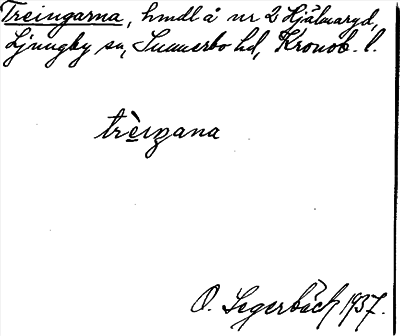 Treingarna, hmdl å nr 2 Hjälmaryd,
Ljungby sn, Sunnerbo hd, Kronob. l.
trè̱rgana
O. Segerbäck 1937.